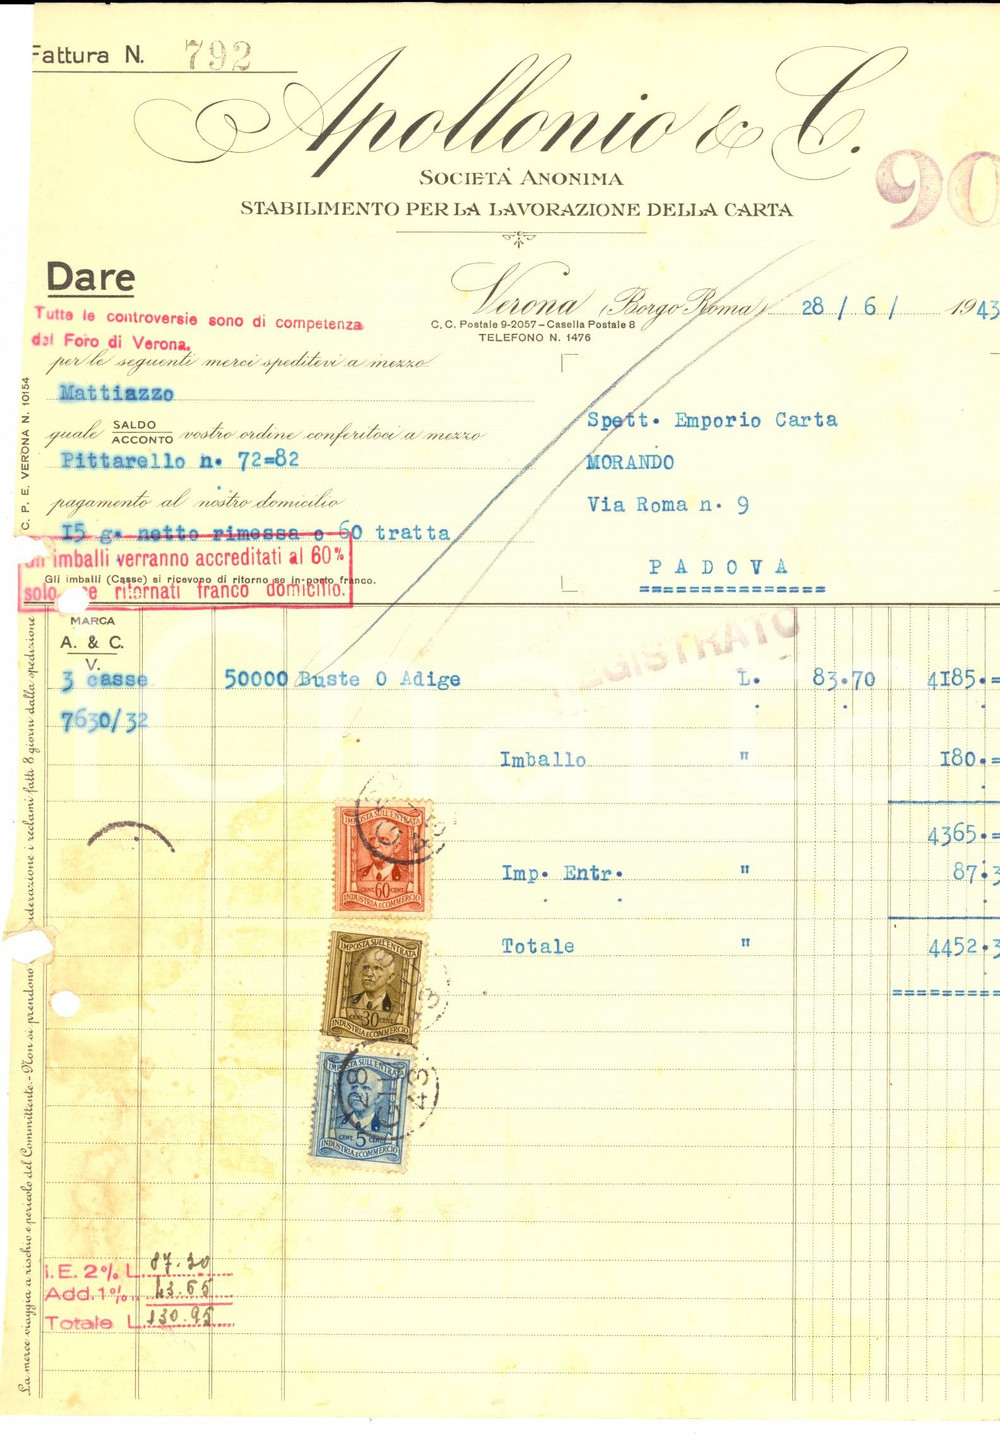 Fattura N. 792
Apollonio & C.
SOCIETÀ ANONIMA
STABILIMENTO PER LA LAVORAZIONE DELLA CARTA
90
Dare
Verona (Borgo Roma) 28 / 6 / 1943
C. C. Postale 9-2057 – Casella Postale 8
TELEFONO N. 1476
Tutte le controversie sono di competenza
del Foro di Verona.
per le seguenti merci speditevi a mezzo
Mattiazzo
quale SALDO ACCONTO vostro ordine conferitoci a mezzo
Pittarello n. 72=82
pagamento al nostro domicilio
15 g. netto rimessa o 60 tratta
C. P. E. VERONA N. 10154
Spett. Emporio Carta
MORANDO
Via Roma n. 9
PADOVA
==============
imballi verranno accreditati al 60%
Gli imballi (Casse) si ricevono di ritorno se in porto franco.
solo se ritornati franco domicilio.
MARCA
A. & C.
V.
REGISTRATO
3 casse 50000 Buste O Adige L. 83.70 4185.=
7630/32
Imballo " 180.=
4365.=
Imp. Entr. " 87.3
Totale " 4452.3
=========
IMPOSTA SULL'ENTRATA
CENT. 60 CENT.
INDUSTRIA E COMMERCIO
IMPOSTA SULL'ENTRATA
CENT. 30 CENT.
INDUSTRIA E COMMERCIO
IMPOSTA SULL'ENTRATA
CENT. 5 CENT.
INDUSTRIA E COMMERCIO
28
43
I.E. 2% L. 87.30
Add. 1% " 43.65
Totale L. 130.95
La merce viaggia a rischio e pericolo del Committente. - Non si prendono
derazione i reclami fatti 8 giorni dalla spedizione